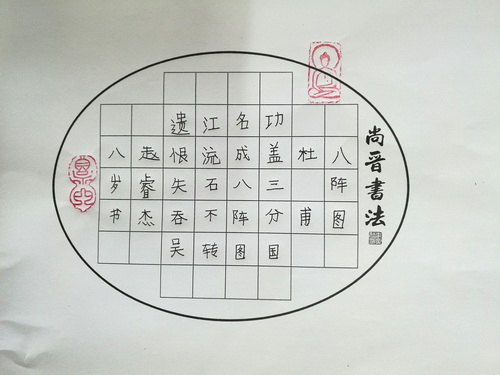 尚晋書法
八阵图
杜甫
功盖三分国
名成八阵图
江流石不转
遗恨失吞吴
赵睿杰
八岁书